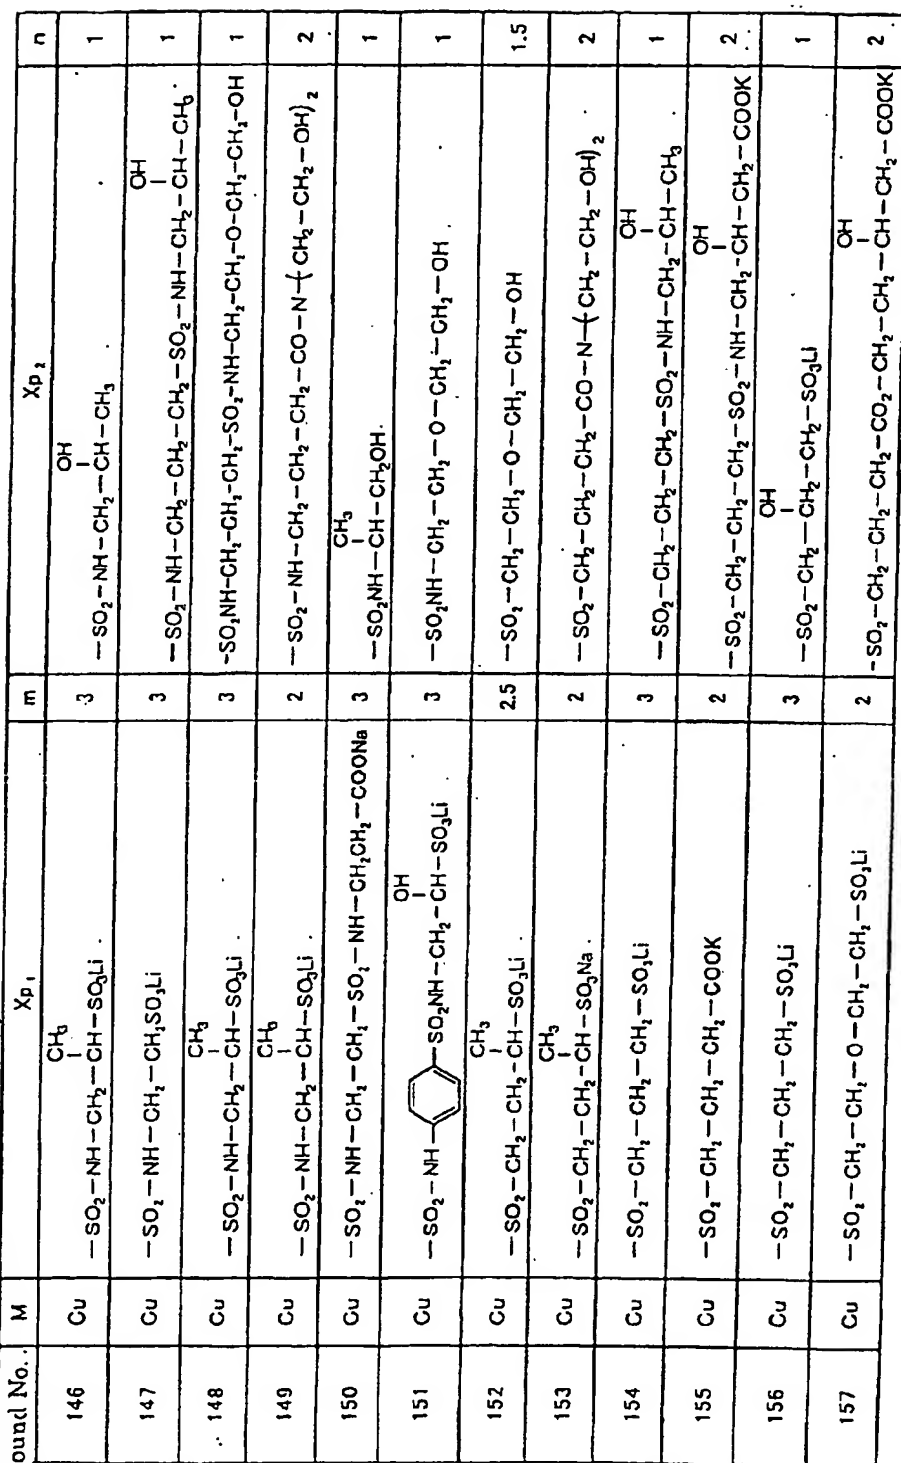 ound No. M Xp₁ m Xp₂ n
146 Cu —SO₂—NH—CH₂—CH(CH₃)—SO₃Li 3 —SO₂—NH—CH₂—CH(OH)—CH₃ 1
147 Cu —SO₂—NH—CH₂—CH₂SO₃Li 3 —SO₂—NH—CH₂—CH₂—CH₂—SO₂—NH—CH₂—CH(OH)—CH₃ 1
148 Cu —SO₂—NH—CH₂—CH(CH₃)—SO₃Li 3 -SO₂NH-CH₂-CH₂-CH₂-SO₂-NH-CH₂-CH₂-O-CH₂-CH₂-OH 1
149 Cu —SO₂—NH—CH₂—CH(CH₃)—SO₃Li 2 —SO₂—NH—CH₂—CH₂—CH₂—CO—N—(CH₂—CH₂—OH)₂ 2
150 Cu —SO₂—NH—CH₂—CH₂—SO₂—NH—CH₂CH₂—COONa 3 —SO₂NH—CH(CH₃)—CH₂OH 1
151 Cu —SO₂—NH— —SO₂NH—CH₂—CH(OH)—SO₃Li 3 —SO₂NH—CH₂—CH₂—O—CH₂—CH₂—OH 1
152 Cu —SO₂—CH₂—CH₂—CH(CH₃)—SO₃Li 2.5 —SO₂—CH₂—CH₂—O—CH₂—CH₂—OH 1.5
153 Cu —SO₂—CH₂—CH₂—CH(CH₃)—SO₃Na 2 —SO₂—CH₂—CH₂—CH₂—CO—N—(CH₂—CH₂—OH)₂ 2
154 Cu —SO₂—CH₂—CH₂—CH₂—SO₃Li 3 —SO₂—CH₂—CH₂—CH₂—SO₂—NH—CH₂—CH(OH)—CH₃ 1
155 Cu —SO₂—CH₂—CH₂—CH₂—COOK 2 —SO₂—CH₂—CH₂—CH₂—SO₂—NH—CH₂—CH(OH)—CH₂—COOK 2
156 Cu —SO₂—CH₂—CH₂—CH₂—SO₃Li 3 —SO₂—CH₂—CH₂(OH)—CH₂—SO₃Li 1
157 Cu —SO₂—CH₂—CH₂—O—CH₂—CH₂—SO₃Li 2 -SO₂—CH₂—CH₂—CH₂—CO₂—CH₂—CH₂—CH(OH)—CH₂—COOK 2